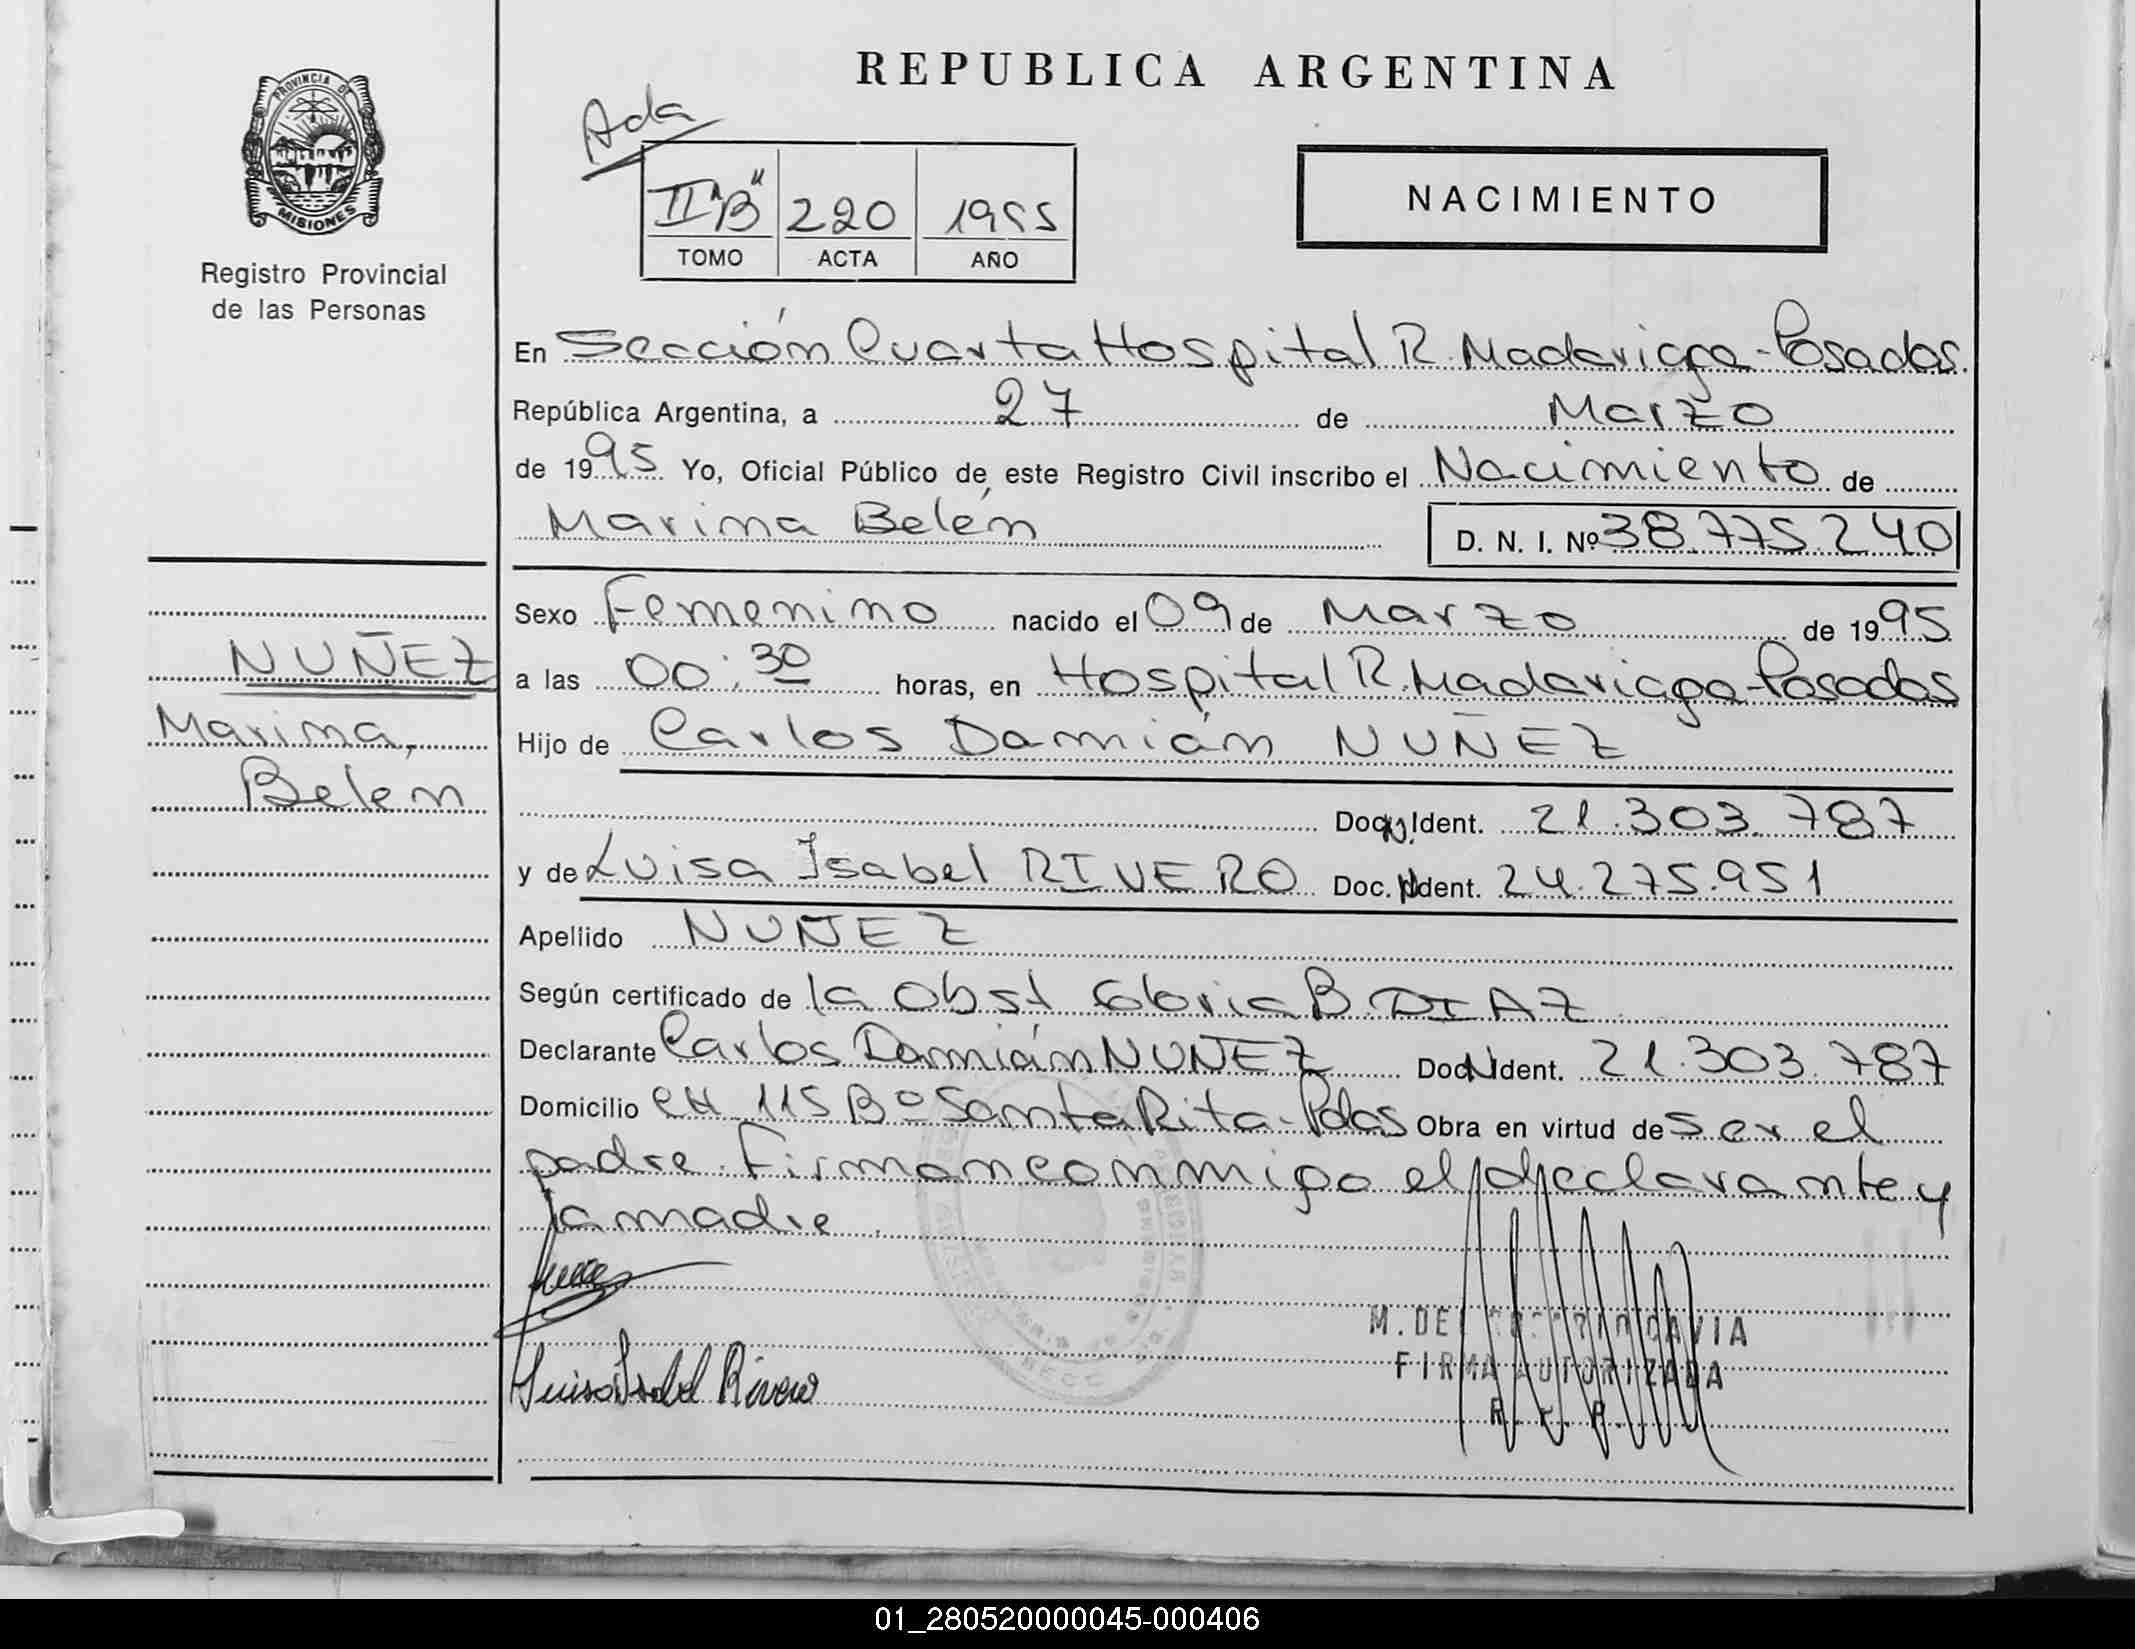 REPUBLICA ARGENTINA
PROVINCIA DE
MISIONES
Registro Provincial
de las Personas
Ada
II "B" 220 1995
TOMO ACTA AÑO
NACIMIENTO
En Sección Cuarta Hospital R. Madariaga - Posadas.
República Argentina, a 27 de Marzo
de 1995. Yo, Oficial Público de este Registro Civil inscribo el Nacimiento de
Marina Belén D. N. I. Nº 38.775.240
Sexo Femenino nacido el 09 de Marzo de 1995.
NUÑEZ
a las 00:30 horas, en Hospital R. Madariaga - Posadas
Marina,
Hijo de Carlos Damián NUÑEZ
Belen
Doc.N.Ident. 21.303.787
y de Luisa Isabel RIVERO Doc. Ndent. 24.275.951
Apellido NUÑEZ
Según certificado de la Obst Gloria B. DIAZ
Declarante Carlos Damián NUÑEZ Doc.N.Ident. 21.303.787
Domicilio CH 115 Bº Santa Rita - Pdas Obra en virtud de ser el
padre. Firman conmigo el declarante y
la madre.
Luisa Isabel Rivero
M. DEL CAVIA
FIRMA AUTORIZADA
R. P.
01_280520000045-000406